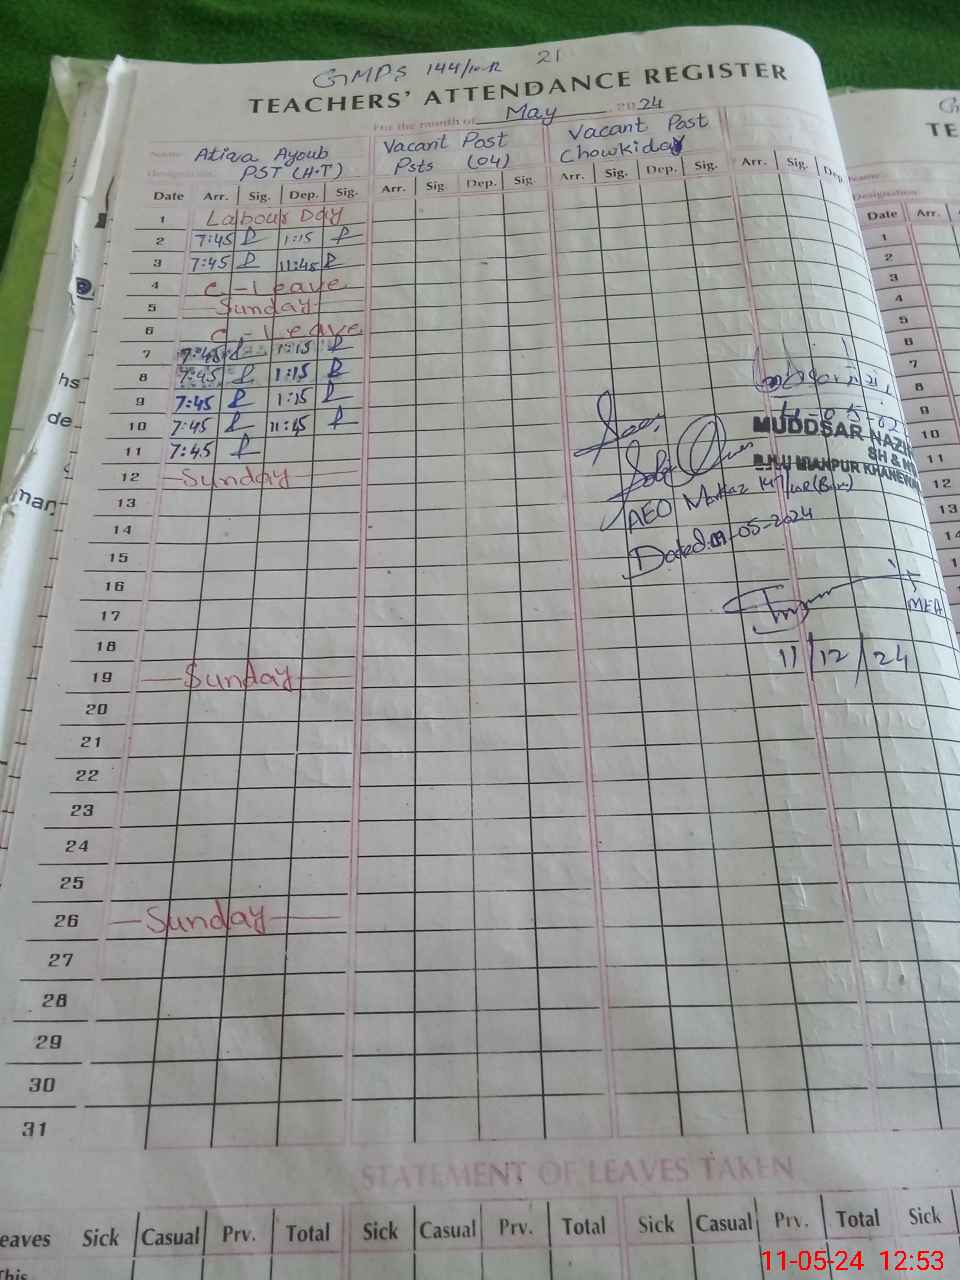 GMPS 144/10-R 21
TEACHERS' ATTENDANCE REGISTER
For the month of May 2024
Name Atiqa Ayoub
Designation PST (H.T)
Vacant Post
Psts (04)
Vacant Post
Chowkidar
Date Arr. Sig. Dep. Sig. Arr. Sig Dep. Sig. Arr. Sig. Dep. Sig. Arr. Sig. Dep.
1 Labour Day
2 7:45 P 1:15 P
3 7:45 P 11:45 P
4 C-Leave
5 Sunday
6 C-Leave
7 7:45 P 1:15 P
8 7:45 P 1:15 P
9 7:45 P 1:15 P
10 7:45 P 11:45 P
11 7:45 P
12 Sunday
13
14
15
16
17
18
19 Sunday
20
21
22
23
24
25
26 Sunday
27
28
29
30
31
MUDDSAR NAZI
SH & N
MIANPUR KHANEWA
AEO Markaz
Dated: 09-05-2024
MEA
11/12/24
STATEMENT OF LEAVES TAKEN
eaves Sick Casual Prv. Total Sick Casual Prv. Total Sick Casual Prv. Total Sick
This
TE
Name
Designation
Date Arr.
1
2
3
4
5
6
7
8
9
10
11
12
13
14
hs
de
man
11-05-24 12:53